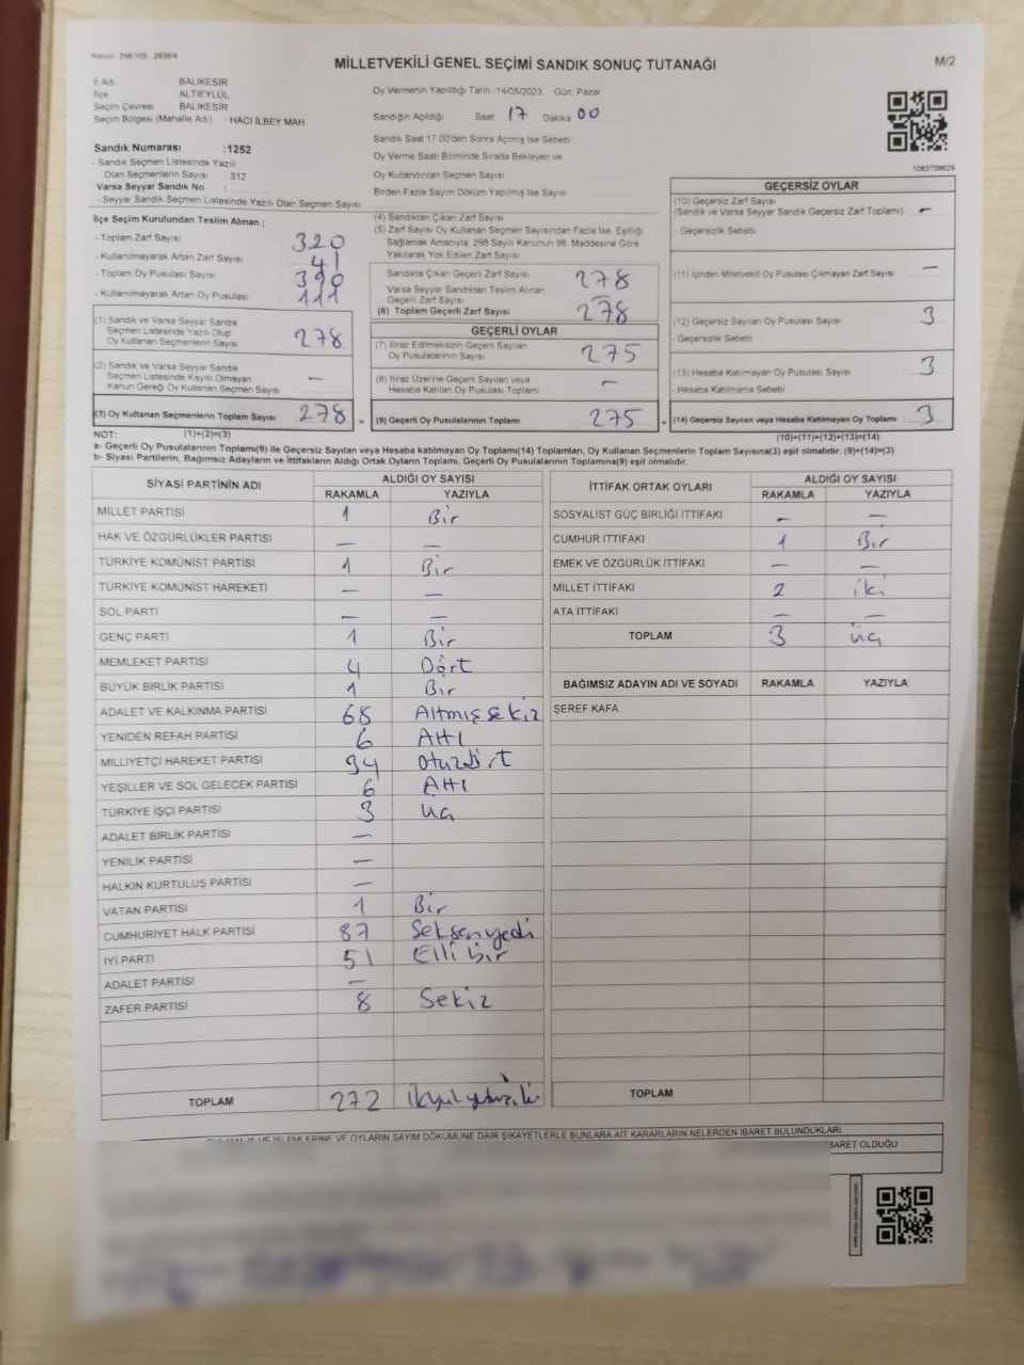 MİLLETVEKİLİ GENEL SEÇİMİ SANDIK SONUÇ TUTANAĞI
M/2
İl Adı BALIKESİR
İlçe ALTIEYLÜL
Seçim Çevresi BALIKESİR
Seçim Bölgesi (Mahalle Adı) : HACI İLBEY MAH.
Sandık Numarası :1252
- Sandık Seçmen Listesinde Yazılı
Olan Seçmenlerin Sayısı : 312
Varsa Seyyar Sandık No :
- Seyyar Sandık Seçmen Listesinde Yazılı Olan Seçmen Sayısı
Oy Vermenin Yapıldığı Tarih :14/05/2023 Gün: Pazar
Sandığın Açıldığı Saat 17 Dakika 00
Sandık Saat 17.00'den Sonra Açılmış İse Sebebi
Oy Verme Saati Bitiminde Sırada Bekleyen ve
Oy Kullandırılan Seçmen Sayısı
Birden Fazla Sayım Döküm Yapılmış İse Sayısı
1083709629
İlçe Seçim Kurulundan Teslim Alınan :
- Toplam Zarf Sayısı 320
- Kullanılmayarak Artan Zarf Sayısı 41
- Toplam Oy Pusulası Sayısı 390
- Kullanılmayarak Artan Oy Pusulası 111
(1) Sandık ve Varsa Seyyar Sandık
Seçmen Listesinde Yazılı Olup
Oy Kullanan Seçmenlerin Sayısı 278
(2) Sandık ve Varsa Seyyar Sandık
Seçmen Listesinde Kayıtlı Olmayan
Kanun Gereği Oy Kullanan Seçmen Sayısı –
(3) Oy Kullanan Seçmenlerin Toplam Sayısı 278
(1)+(2)=(3)
(4) Sandıktan Çıkan Zarf Sayısı
(5) Zarf Sayısı Oy Kullanan Seçmen Sayısından Fazla İse, Eşitliği
Sağlamak Amacıyla, 298 Sayılı Kanunun 98. Maddesine Göre
Yakılarak Yok Edilen Zarf Sayısı
Sandıkta Çıkan Geçerli Zarf Sayısı 278
Varsa Seyyar Sandıktan Teslim Alınan
Geçerli Zarf Sayısı –
(6) Toplam Geçerli Zarf Sayısı 278
GEÇERLİ OYLAR
(7) İtiraz Edilmeksizin Geçerli Sayılan
Oy Pusulalarının Sayısı 275
(8) İtiraz Üzerine Geçerli Sayılan veya
Hesaba Katılan Oy Pusulası Toplamı –
(9) Geçerli Oy Pusulalarının Toplamı 275
GEÇERSİZ OYLAR
(10) Geçersiz Zarf Sayısı
(Sandık ve Varsa Seyyar Sandık Geçersiz Zarf Toplamı) –
- Geçersizlik Sebebi
(11) İçinden Milletvekili Oy Pusulası Çıkmayan Zarf Sayısı –
(12) Geçersiz Sayılan Oy Pusulası Sayısı 3
- Geçersizlik Sebebi
(13) Hesaba Katılmayan Oy Pusulası Sayısı 3
- Hesaba Katılmama Sebebi
(14) Geçersiz Sayılan veya Hesaba Katılmayan Oy Toplamı 3
(10)+(11)+(12)+(13)=(14)
NOT:
a- Geçerli Oy Pusulalarının Toplamı(9) ile Geçersiz Sayılan veya Hesaba Katılmayan Oy Toplamı(14) Toplamları, Oy Kullanan Seçmenlerin Toplam Sayısına(3) eşit olmalıdır. (9)+(14)=(3)
b- Siyasi Partilerin, Bağımsız Adayların ve İttifakların Aldığı Ortak Oyların Toplamı, Geçerli Oy Pusulalarının Toplamına(9) eşit olmalıdır.
SİYASİ PARTİNİN ADI ALDIĞI OY SAYISI
RAKAMLA YAZIYLA
MİLLET PARTİSİ 1 Bir
HAK VE ÖZGÜRLÜKLER PARTİSİ – –
TÜRKİYE KOMÜNİST PARTİSİ 1 Bir
TÜRKİYE KOMÜNİST HAREKETİ – –
SOL PARTİ – –
GENÇ PARTİ 1 Bir
MEMLEKET PARTİSİ 4 Dört
BÜYÜK BİRLİK PARTİSİ 1 Bir
ADALET VE KALKINMA PARTİSİ 68 Altmışsekiz
YENİDEN REFAH PARTİSİ 6 Altı
MİLLİYETÇİ HAREKET PARTİSİ 34 otuzdört
YEŞİLLER VE SOL GELECEK PARTİSİ 6 Altı
TÜRKİYE İŞÇİ PARTİSİ 3 üç
ADALET BİRLİK PARTİSİ –
YENİLİK PARTİSİ –
HALKIN KURTULUŞ PARTİSİ –
VATAN PARTİSİ 1 Bir
CUMHURİYET HALK PARTİSİ 87 Seksenyedi
İYİ PARTİ 51 Elli bir
ADALET PARTİSİ –
ZAFER PARTİSİ 8 Sekiz
TOPLAM 272
İTTİFAK ORTAK OYLARI ALDIĞI OY SAYISI
RAKAMLA YAZIYLA
SOSYALİST GÜÇ BİRLİĞİ İTTİFAKI – –
CUMHUR İTTİFAKI 1 Bir
EMEK VE ÖZGÜRLÜK İTTİFAKI – –
MİLLET İTTİFAKI 2 iki
ATA İTTİFAKI – –
TOPLAM 3 üç
BAĞIMSIZ ADAYIN ADI VE SOYADI RAKAMLA YAZIYLA
ŞEREF KAFA
TOPLAM
VE OYLARIN SAYIM DÖKÜMÜNE DAİR ŞİKAYETLERLE BUNLARA AİT KARARLARIN NELERDEN İBARET BULUNDUKLARI
OLDUĞU